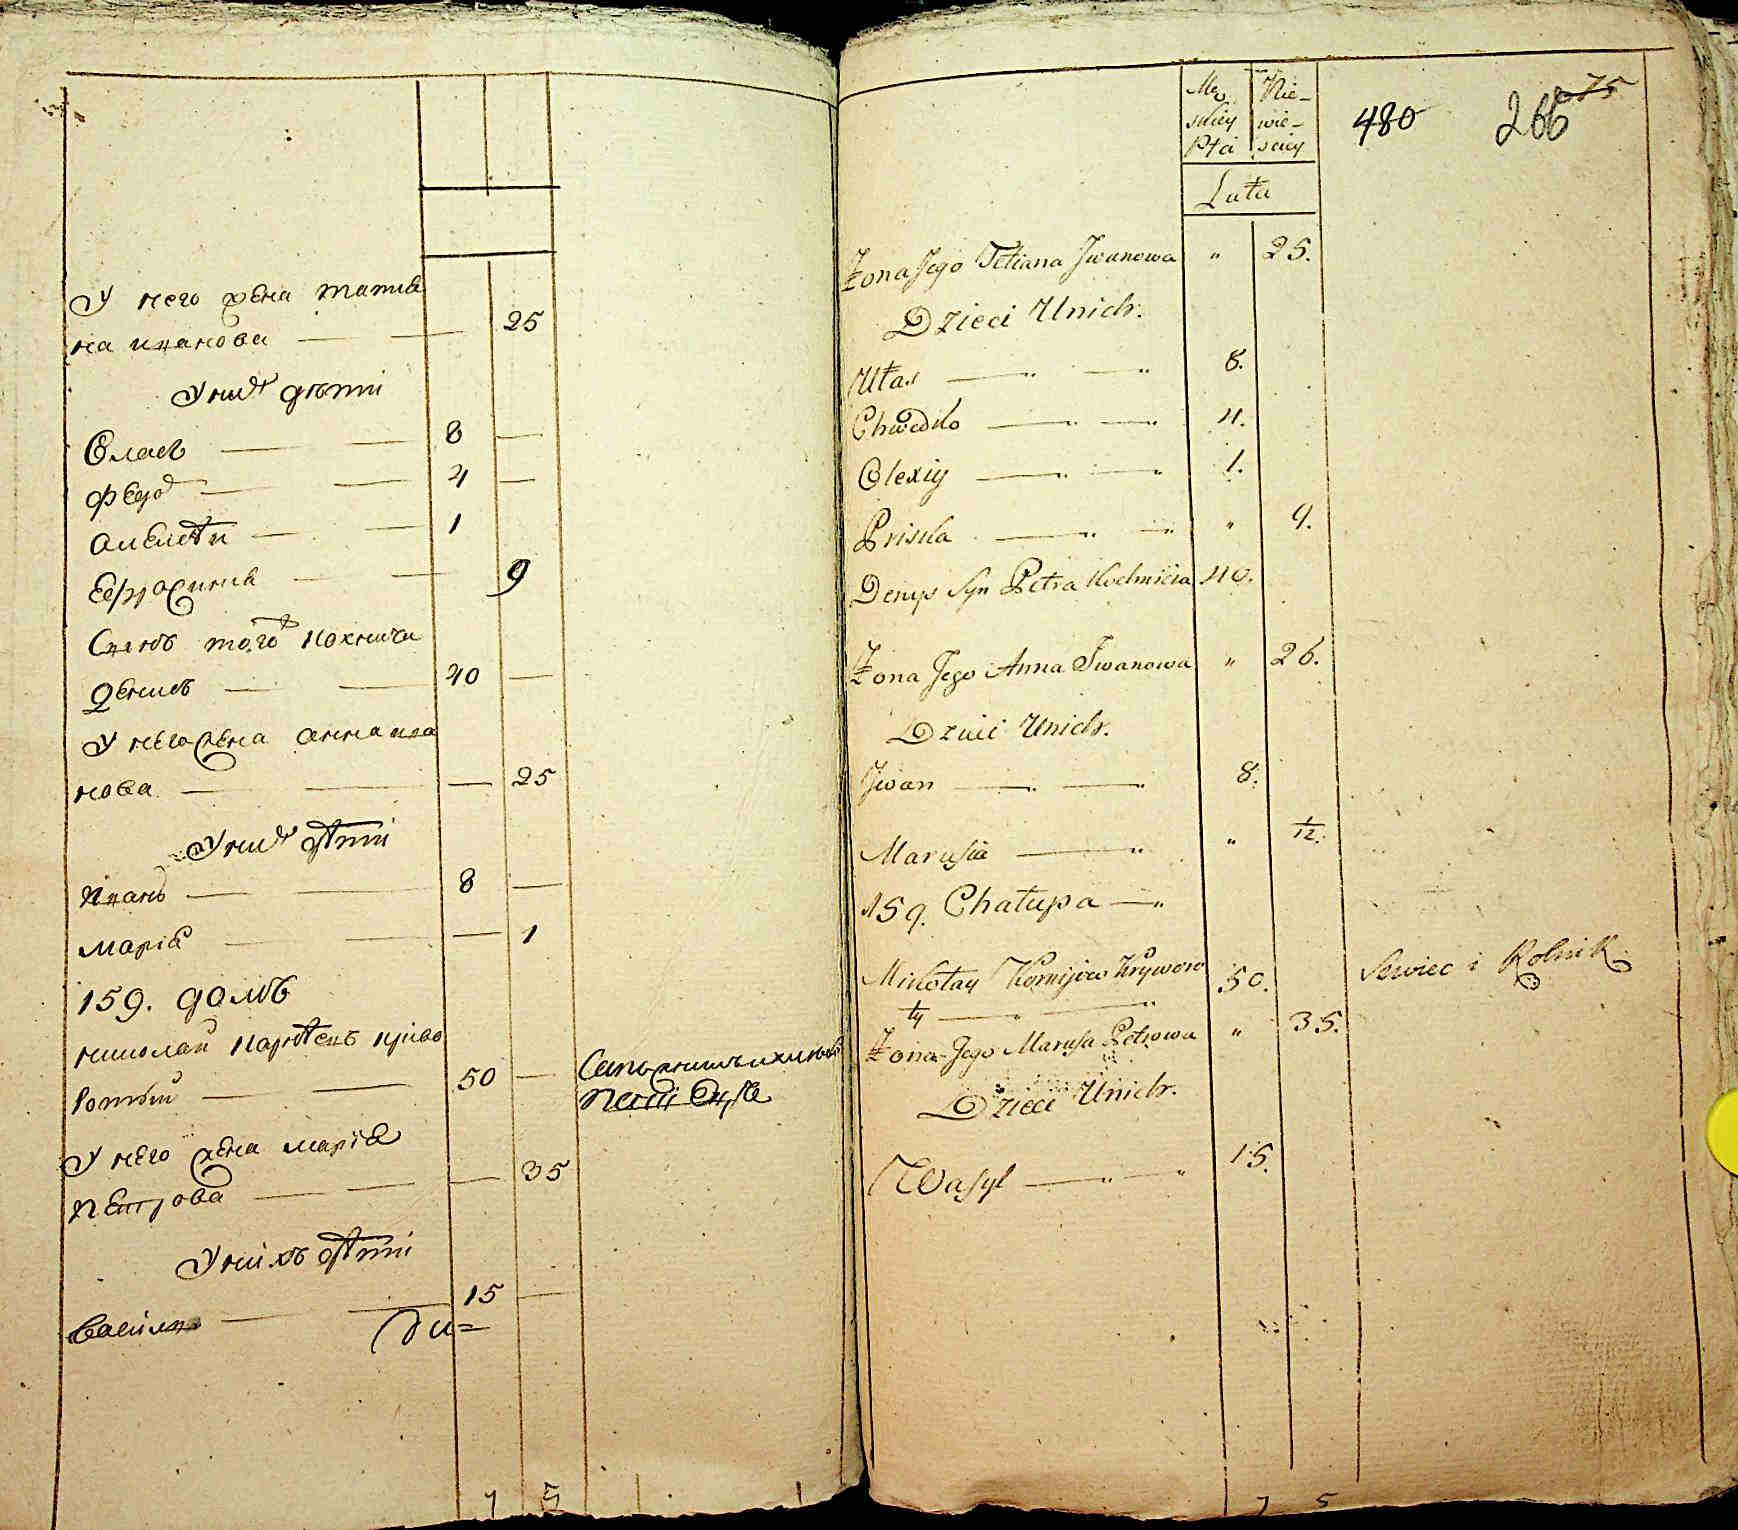 У него жена татия
на иванова — — 25
У них дѣти
Власъ — — 8 —
Федор — — 4 —
Алексѣи — — 1
Ефросиния — — 9
Синъ того Кохмича
Денисъ — — 40 —
У него жена анна ива
нова — — — 25
У них дѣти
Иванъ — — 8 —
Мария — — — 1
159. домъ
николай Карнѣевъ криво
ротый — — 50 —
У него жена мария
Петрова — — — 35
У нихъ дѣти
Василь — — 15 —
7 5
Mę Nie-
skiey wie-
Płci sciey
Lata
480 266 75
Żona Jego Tetiana Iwanowa " 25.
Dzieci Unich.
Ułas — " — " 8.
Chwedko — " — " 4.
Olexiy — " — " 1.
Priska — " — " " 9.
Denys Syn Petra Kochmicza 40.
Żona Jego Anna Iwanowa " 26.
Dzieci Unich.
Iwan — " — " 8.
Marusia — " " 1/12.
159. Chałupa — "
Mikołay Kornijew Kryworo 50. Szwiec i Rolnik
ty — " — "
Żona Jego Marusa Petrowa " 35.
Dzieci Unich.
Wasyl — " — " 15.
7 5